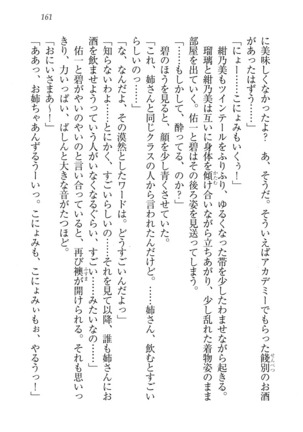 161
に美味しくなかったよぅ？　あ、そうだ。そういえばアカデミーでもらった餞別のお酒
せんべつ
があったはずぅ……」
「にょーー……こにょみもいくぅ！」
紺乃美もツインテールをふりふり、ゆるくなった帯を少したわませながら続く。
瑠璃と紺乃美は互いに身体を傾け合いながら立ちあがり、少し乱れた着物姿のまま
部屋を出ていく。佑一と碧はその後ろ姿を見送ってしまう。
「……もしかして、酔ってる、のか？」
碧のほうを見ると、顔を少し青くしていた。
「これ、姉さんと同じクラスの人から言われたんだけど。……姉さん、飲むとすごい
らしいの……」
「な、なんだよ、その漠然としたワードは。どうすごいんだよっ」
「知らないわよ…とにかく、すごいらしいの……それを見て以降、誰も姉さんにお
酒を飲ませようっていう人がいなくなるぐらい、すごい……みたいなの……」
佑一と碧がそんなやりとりをと言い合っていると、再び襖が開けられる。それも思いっ
ふすま
きり、力いっぱい、ぱしーんと大きな音がたつほど。
「おにいさまあ〜！」
「ああっ、お姉ちゃあんずるうーいっ。こにょみも、こにょみぃもぉ、やるうっ！」